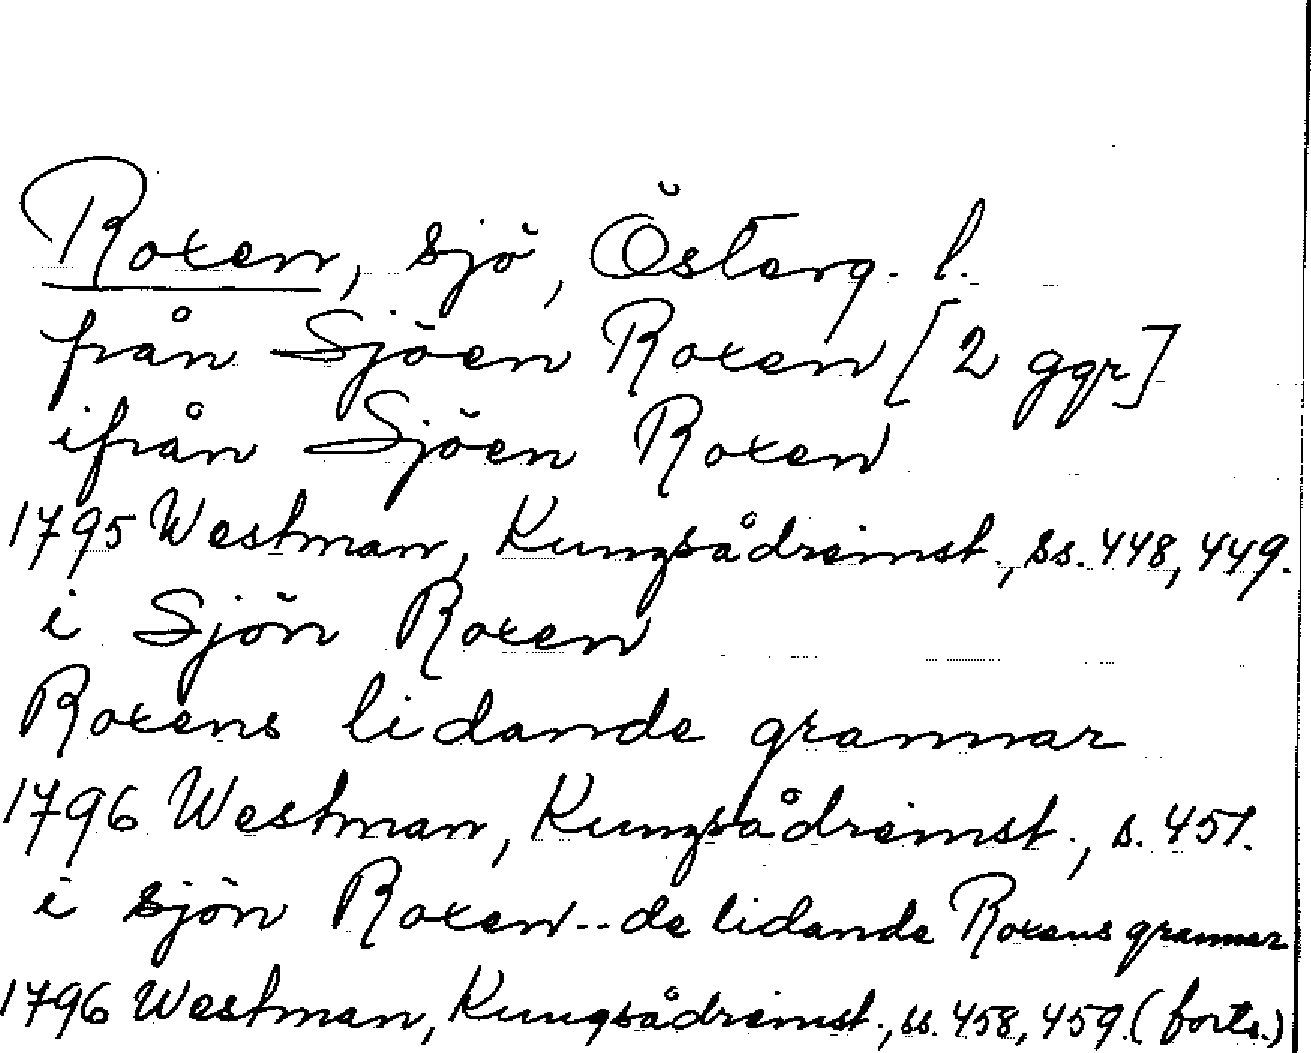 Roxen, sjö, Österg. l.
från Sjöen Roxen [2 ggr]
ifrån Sjöen Roxen
1795 Westman, Kungsådreinst., ss. 448, 449.
i Sjön Roxen
Roxens lidande grannar
1796 Westman, Kungsådreinst., s. 451.
i sjön Roxen -- de lidande Roxens grannar
1796 Westman, Kungsådreinst., ss. 458, 459. (forts.)